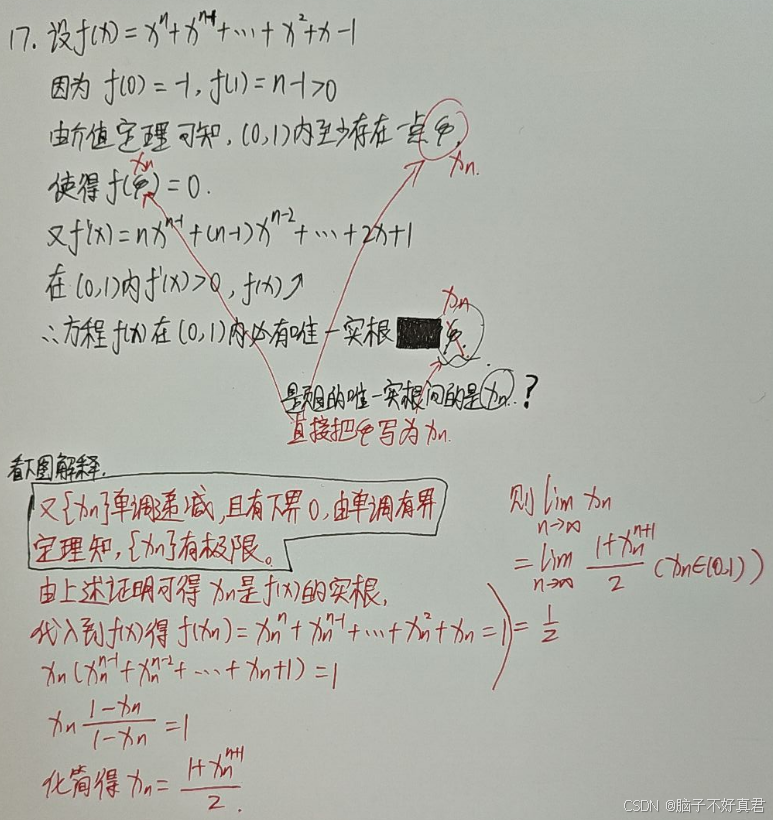 17. 设f(x)=xⁿ+xⁿ⁻¹+⋯+x²+x-1
因为 f(0)=-1, f(1)=n-1>0
由介值定理可知, (0,1)内至少存在一点ξ,
xₙ
xₙ.
使得f(ξ)=0.
又f'(x)=nxⁿ⁻¹+(n-1)xⁿ⁻²+⋯+2x+1
在(0,1)内f'(x)>0, f(x)↗
xₙ
∴方程f(x)在(0,1)内必有唯一实根 ξ.
是题目的唯一实根问的是xₙ.?
直接把ξ写为xₙ.
看下图解释.
又{xₙ}单调递减,且有下界0,由单调有界
定理知,{xₙ}有极限。
由上述证明可得xₙ是f(x)的实根,
代入到f(x)得f(xₙ)=xₙⁿ+xₙⁿ⁻¹+⋯+xₙ²+xₙ=1
xₙ(xₙⁿ⁻¹+xₙⁿ⁻²+⋯+xₙ+1)=1
xₙ (1-xₙ)/(1-xₙ) =1
化简得xₙ= (1+xₙⁿ⁺¹)/2.
则 lim n→∞ xₙ
= lim n→∞ (1+xₙⁿ⁺¹)/2 (xₙ∈(0,1))
= 1/2
CSDN @脑子不好真君